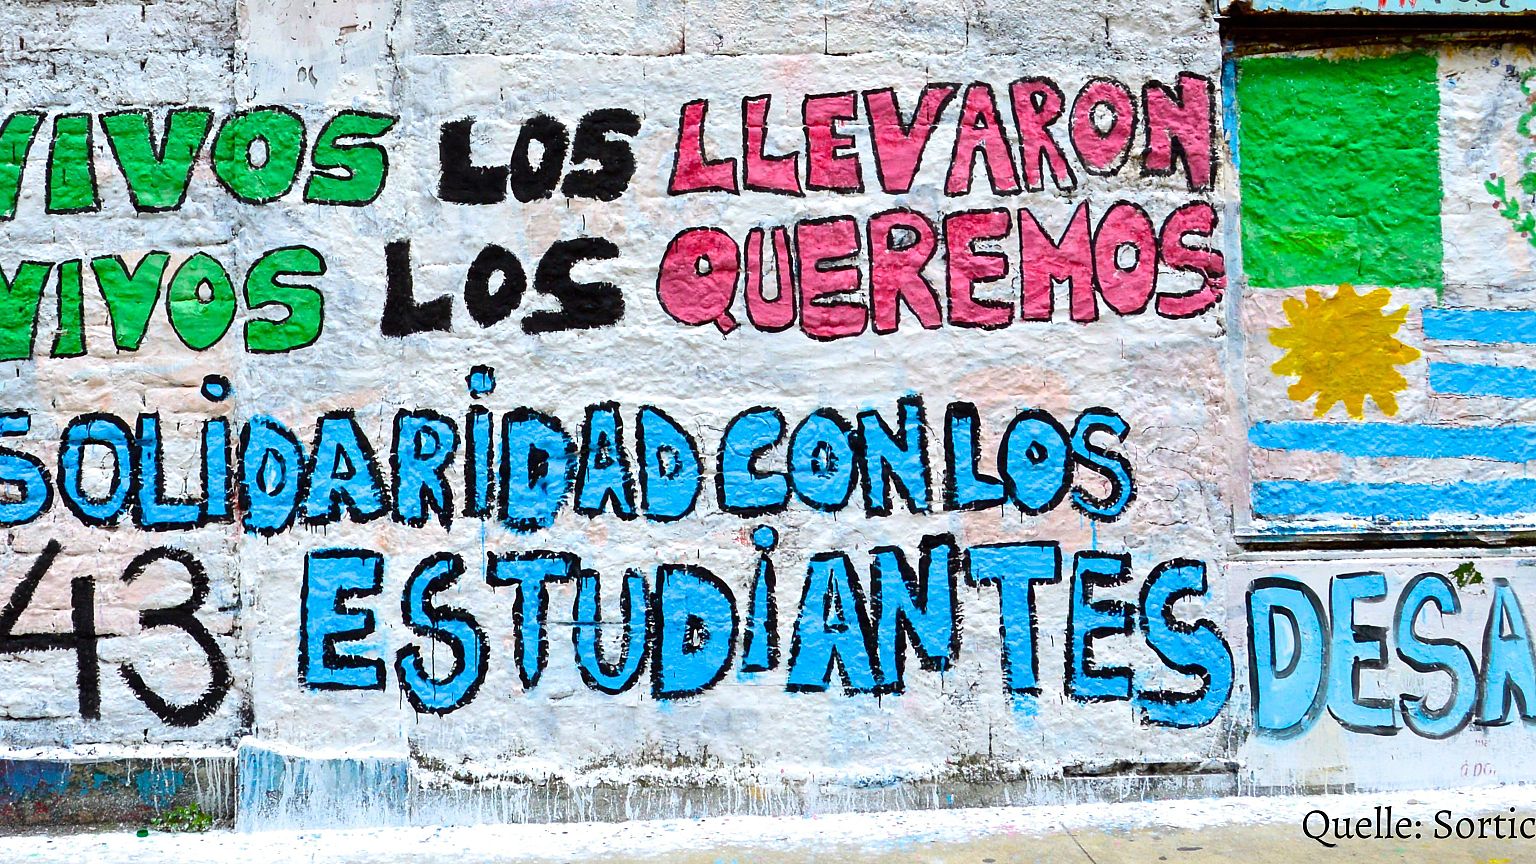 VIVOS LOS LLEVARON
VIVOS LOS QUEREMOS
SOLiDARiDAD CON LOS
43 ESTUDiANTES DESA
Quelle: Sortic